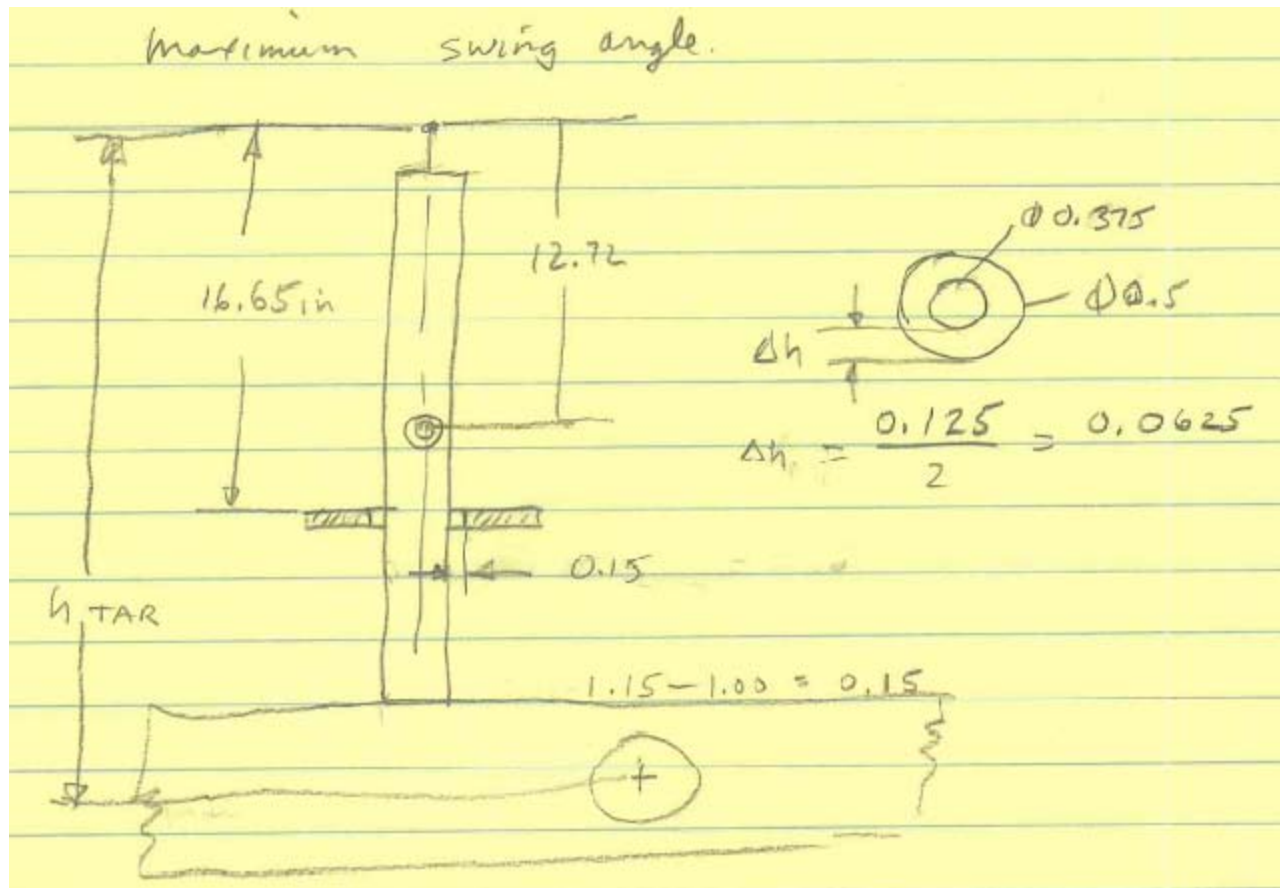 Maximum swing angle.
16.65 in
12.72
Φ0.375
Φ0.5
Δh
Δh = 0.125/2 = 0.0625
0.15
h TAR
1.15-1.00 = 0.15